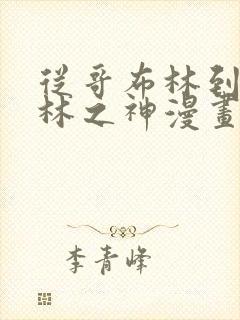 從哥布林到
林之神漫畫
李青峰